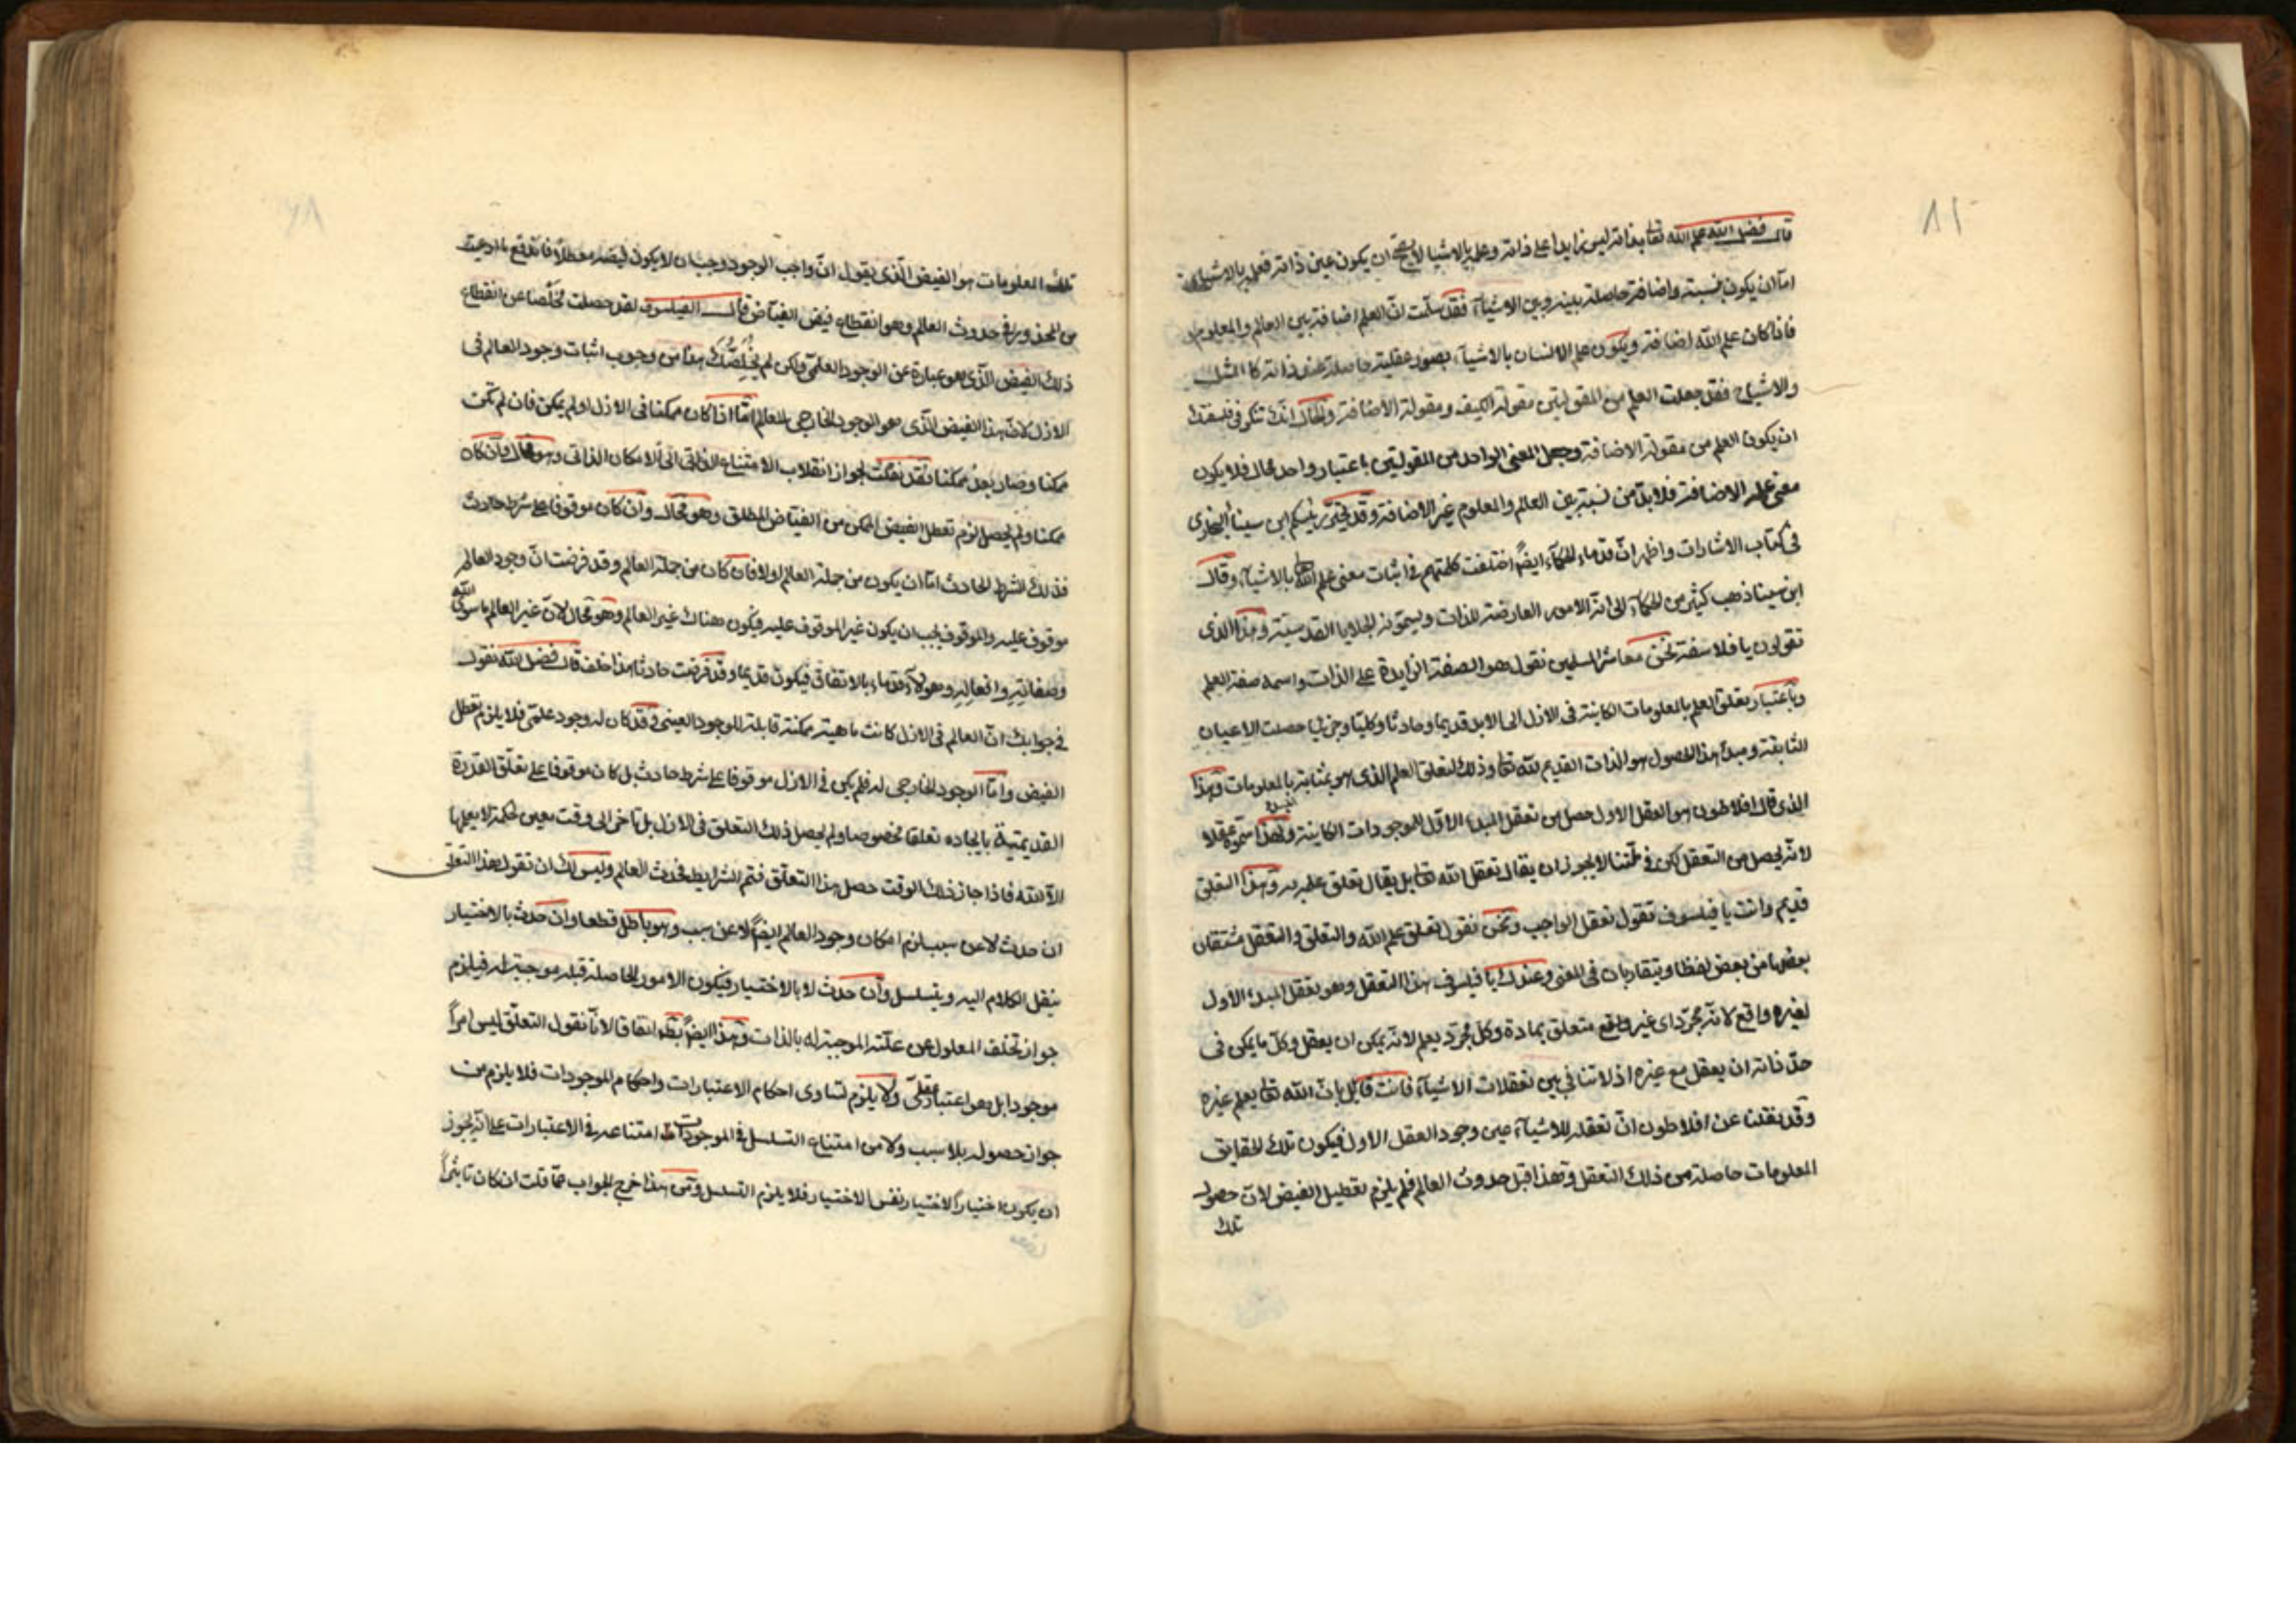 ٨٥
قال فضل الله علم الله تعالى بذاته ليس زايدا على ذاته وعلمه بالاشياء لا يصح ان يكون عين ذاته فعلمه بالاشياء
اما ان يكون بنسبة واضافة حاصلة بينه وبين الاشياء فقد سلمت ان العلم اضافة بين العالم والمعلوم
فاذا كان علم الله اضافة ويكون علم الانسان بالاشياء بصور عقلية حاصلة عند ذاته كالمثل
والاشباح فقد جعلت العلم من المقولتين مقولة الكيف ومقولة الاضافة والحال انك تنكر في فلسفتك
ان يكون العلم من مقولة الاضافة وجعل المعنى الواحد من المقولتين باعتبار واحد محال فلا يكون
معنى علمه الاضافة فلابد من نسبة بين العالم والمعلوم غير الاضافة وقد تحيّر رئيسكم ابن سينا البخاري
في كتاب الاشارات واظهر ان قدماء الحكماء ايضًا اختلفت كلمتهم في اثبات معنى علم الله تعالى بالاشياء وقال
ابن سينا ذهب كثير من الحكماء الى انه الامور العارضة للذات ويسمونه الجلايا القدسية وهذا الذي
تقولون يا فلاسفة نحن معاشر المسلمين نقول هو الصفة الزايدة على الذات واسمه صفة العلم
وباعتبار تعلق العلم بالمعلومات الكاينة في الازل الى الابد قديما وحادثا وكليا وجزئيا حصلت الاعيان
الثابتة ومبدأ هذا الحصول هو الذات القديم لله تعالى وذلك لتعلق العلم الذي هو بمثابة بالمعلومات وهذا
الذي قال افلاطون هو العقل الاول حصل من تعقل المبدا الاول الموجودات الكاينة ولهذا سموه عقلا
لانه يحصل من التعقل لكن في ملتنا لا يجوز ان يقال تعقل الله تعالى بل يقال تعلق علمه به وهذا التعلق
قديم وانت يا فيلسوف تقول تعقل الواجب ونحن نقول تعلق علم الله والتعلق والتعقل مشتقان
بعضهما من بعض لفظا ويتقاربان في المعنى وعندك يا فيلسوف هذا التعقل وهو تعقل المبدء الاول
لغيره واقع لانه مجرد اي غير واقع متعلق بمادة وكل مجرد يعلم لانه يمكن ان يعقل وكل ما يمكن في
حد ذاته ان يعقل مع غيره اذ لا تنافي بين تعقلات الاشياء فانت قايل بان الله تعالى يعلم غيره
وقد نقلنا عن افلاطون ان تعقله للاشياء عين وجود العقل الاول فيكون تلك الحقايق
المعلومات حاصلة من ذلك التعقل وهذا قبل حدوث العالم فلم يلزم تعطيل الفيض لان حصول
تلك
٨٦
تلك المعلومات هو الفيض الذي يقول ان واجب الوجود وجب ان لا يكون فيضه معطلا فاندفع ما ادعيت
من المحذور في حدوث العالم وهو انقطاع فيض الفياض قال الفيلسوف لقد حصلت مخلصا عن انقطاع
ذلك الفيض الذي هو عبارة عن الوجود العلمي ولكن لم يخلصك هذا من وجوب اثبات وجود العالم في
الازل لان هذا الفيض الذي هو الوجود الخارجي للعالم اما اذا كان ممكنا في الازل او لم يمكن فان لم يكن
ممكنا وصار بعد ممكنا فقد نفكت لجواز انقلاب الامتناع الذاتي الى الامكان الذاتي وهو محال وان كان
ممكنا ولم يحصل لزم تعطل الفيض الممكن من الفياض المطلق وهو محال وان كان موقوفا على شرط حادث
فذلك الشرط الحادث اما ان يكون من جملة العالم او لا فان كان من جملة العالم وقد فرضت ان وجود العالم
موقوف عليه والموقوف يجب ان يكون غير الموقوف عليه فيكون هناك غير العالم وهو محال لان غير العالم ما سوى الله
وصفاته وافعاله وهولاء قدماء بالاتفاق فيكون قديما وقد فرضت حادثا هذا خلف قال فضل الله نقول
في جوابك ان العالم في الازل كانت ماهيته ممكنة قابلة للوجود العيني وقد كان له وجود علمي فلا يلزم تعطل
الفيض واما الوجود الخارجي له فلم يكن في الازل موقوفا على شرط حادث بل كان موقوفا على تعلق القدرة
القديمية بايجاده تعلقا مخصوصا ولم يحصل ذلك التعلق في الازل بل تاخر الى وقت معين لحكمة لا يعلمها
الا الله فاذا جاز ذلك الوقت حصل هذا التعلق فتم الشرايط فحدث العالم وليس لك ان تقول هذا التعلق
ان حدث لا عن سبب لزم امكان وجود العالم ايضًا لا عن سبب وهو باطل قطعا وان حدث بالاختيار
ينقل الكلام اليه ويتسلسل وان حدث لا بالاختيار فيكون الامور الحاصلة قبله موجبة له فيلزم
جواز تخلف المعلول عن علته الموجبة له بالذات وهذا ايضًا بط اتفاقا لانا نقول التعلق ليس امراً
موجودا بل هو اعتبار عقلي ولا يلزم تساوى احكام الاعتبارات واحكام الموجودات فلا يلزم من
جواز حصوله بلا سبب ولا من امتناع التسلسل في الموجودات امتناعه في الاعتبارات على انه يجوز
ان يكون اختيار الاختيار نفس الاختيار فلا يلزم التسلسل ومن هذا خرج الجواب عما قلت ان كان تاثيراً